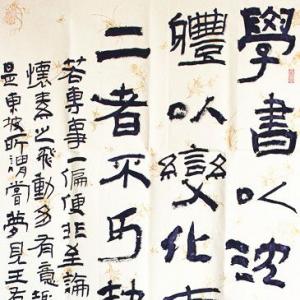 學書以沈
體以變化
二者不巧
若專事一偏便非至論
懷素之飛動多有意
是東坡所謂嘗夢見王